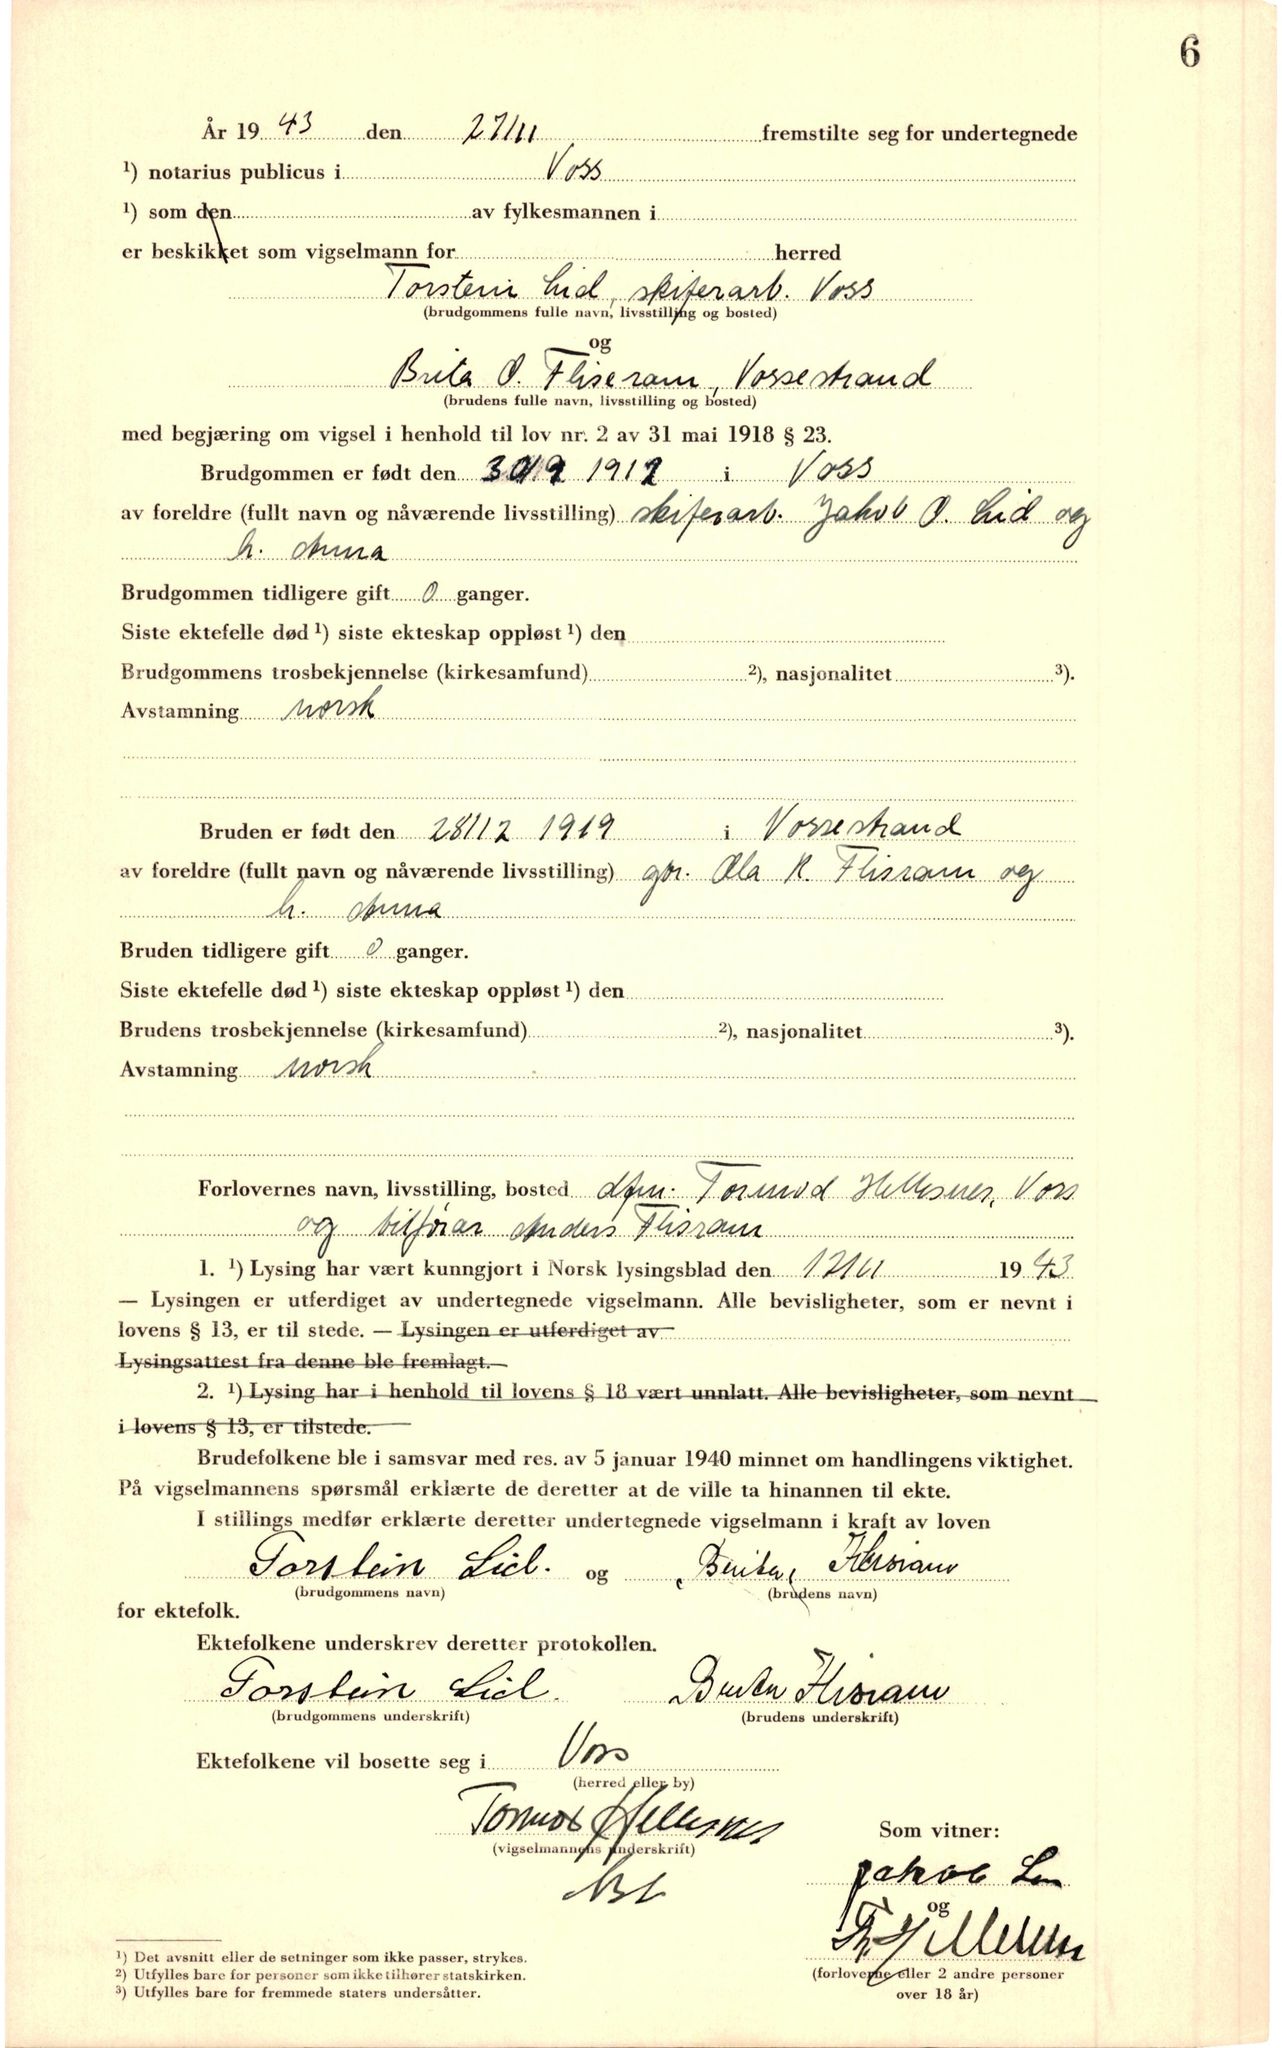 6
År 19 43 den 27/11 fremstilte seg for undertegnede
¹) notarius publicus i Voss
¹) som den av fylkesmannen i
er beskikket som vigselmann for herred
Torstein Lid, skiferarb. Voss
(brudgommens fulle navn, livsstilling og bosted)
og
Brita O. Fliseram, Vossestrand
(brudens fulle navn, livsstilling og bosted)
med begjæring om vigsel i henhold til lov nr. 2 av 31 mai 1918 § 23.
Brudgommen er født den 1912 i Voss
av foreldre (fullt navn og nåværende livsstilling) skiferarb. Jakob O. Lid og
h. Anna
Brudgommen tidligere gift 0 ganger.
Siste ektefelle død ¹) siste ekteskap oppløst ¹) den
Brudgommens trosbekjennelse (kirkesamfund) ²), nasjonalitet ³).
Avstamning norsk
Bruden er født den 28/12 1919 i Vossestrand
av foreldre (fullt navn og nåværende livsstilling) gbr. Ola K. Flisram og
h. Anna
Bruden tidligere gift 0 ganger.
Siste ektefelle død ¹) siste ekteskap oppløst ¹) den
Brudens trosbekjennelse (kirkesamfund) ²), nasjonalitet ³).
Avstamning norsk
Forlovernes navn, livsstilling, bosted dfm. Tormod Hellesnes, Voss
og bilfører Anders Flisram
1. ¹) Lysing har vært kunngjort i Norsk lysingsblad den 12/11 19 43
— Lysingen er utferdiget av undertegnede vigselmann. Alle bevisligheter, som er nevnt i
lovens § 13, er til stede. — Lysingen er utferdiget av
Lysingsattest fra denne ble fremlagt. —
2. ¹) Lysing har i henhold til lovens § 18 vært unnlatt. Alle bevisligheter, som nevnt
i lovens § 13, er tilstede.
Brudefolkene ble i samsvar med res. av 5 januar 1940 minnet om handlingens viktighet.
På vigselmannens spørsmål erklærte de deretter at de ville ta hinannen til ekte.
I stillings medfør erklærte deretter undertegnede vigselmann i kraft av loven
Torstein Lid. og Brita Flisram
(brudgommens navn) (brudens navn)
for ektefolk.
Ektefolkene underskrev deretter protokollen.
Torstein Lid. Brita Flisram
(brudgommens underskrift) (brudens underskrift)
Ektefolkene vil bosette seg i Voss
(herred eller by)
Tormod Hellesnes
(vigselmannens underskrift)
Som vitner:
Jakob
og
Hellesnes
(forloverne eller 2 andre personer
over 18 år)
¹) Det avsnitt eller de setninger som ikke passer, strykes.
²) Utfylles bare for personer som ikke tilhører statskirken.
³) Utfylles bare for fremmede staters undersåtter.